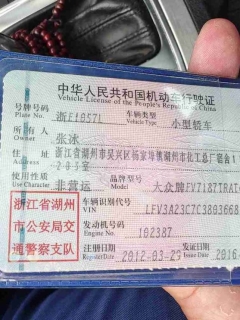 中华人民共和国机动车行驶证
Vehicle License of the People's Republic of China
号牌号码 浙E1057L 车辆类型 小型轿车
Plate No. Vehicle Type
所有人 张泳
Owner
住址 浙江省湖州市吴兴区杨家埠镇湖州市化工总厂宿舍1
205室
使用性质 非营运 品牌型号 大众牌FV7187TRAT
Use Character
浙江省湖州
市公安局交
通警察支队
车辆识别代号
VIN LFV3A23C7C3093668
发动机号码
Engine No. 102387
注册日期 2012-03-23 发证日期 2016
Register Date Issue Date